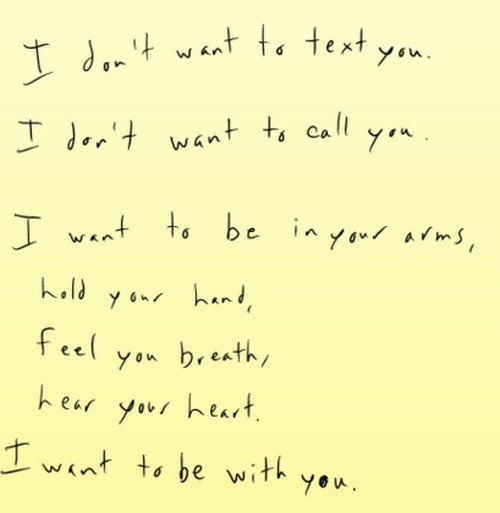 I don't want to text you.
I don't want to call you.
I want to be in your arms,
hold your hand,
feel you breath,
hear your heart.
I want to be with you.